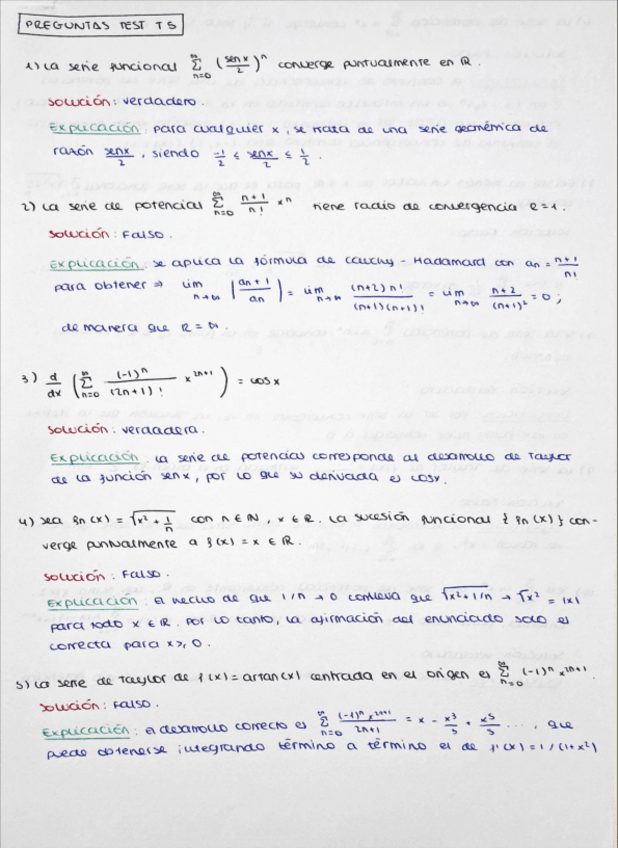 PREGUNTAS TEST T5
1) La serie funcional ∞ Σ n=0 (senx/2)^n converge puntualmente en ℝ.
Solución: verdadero
Explicación: para cualquier x, se trata de una serie geométrica de
razón senx/2, siendo -1/2 ≤ senx/2 ≤ 1/2.
2) La serie de potencias ∞ Σ n=0 (n+1)/n! x^n tiene radio de convergencia R=1.
Solución: Falso.
Explicación: se aplica la fórmula de Cauchy-Hadamard con an = (n+1)/n!
para obtener ⇒ lim n→∞ |an+1/an| = lim n→∞ (n+2)n!/(n+1)(n+1)! = lim n→∞ (n+2)/(n+1)² = 0;
de manera que R=∞.
3) d/dx (∞ Σ n=0 (-1)^n/(2n+1)! x^2n+1) = cosx
Solución: verdadera.
Explicación: La serie de potencias corresponde al desarrollo de Taylor
de la función senx, por lo que su derivada es cosx.
4) Sea fn(x) = √(x²+1/n) con n∈ℕ, x∈ℝ. La sucesión funcional {fn(x)} con-
verge puntualmente a f(x) = x ∈ ℝ.
Solución: Falso.
Explicación: El hecho de que 1/n → 0 conlleva que √(x²+1/n) → √x² = |x|
para todo x∈ℝ. Por lo tanto, la afirmación del enunciado solo es
correcta para x≥0.
5) La serie de Taylor de f(x) = artan(x) centrada en el origen es ∞ Σ n=0 (-1)^n x^2n+1.
Solución: Falso.
Explicación: El desarrollo correcto es ∞ Σ n=0 (-1)^n x^2n+1/2n+1 = x - x³/3 + x⁵/5 ..., que
puede obtenerse integrando término a término el de f'(x) = 1/(1+x²)